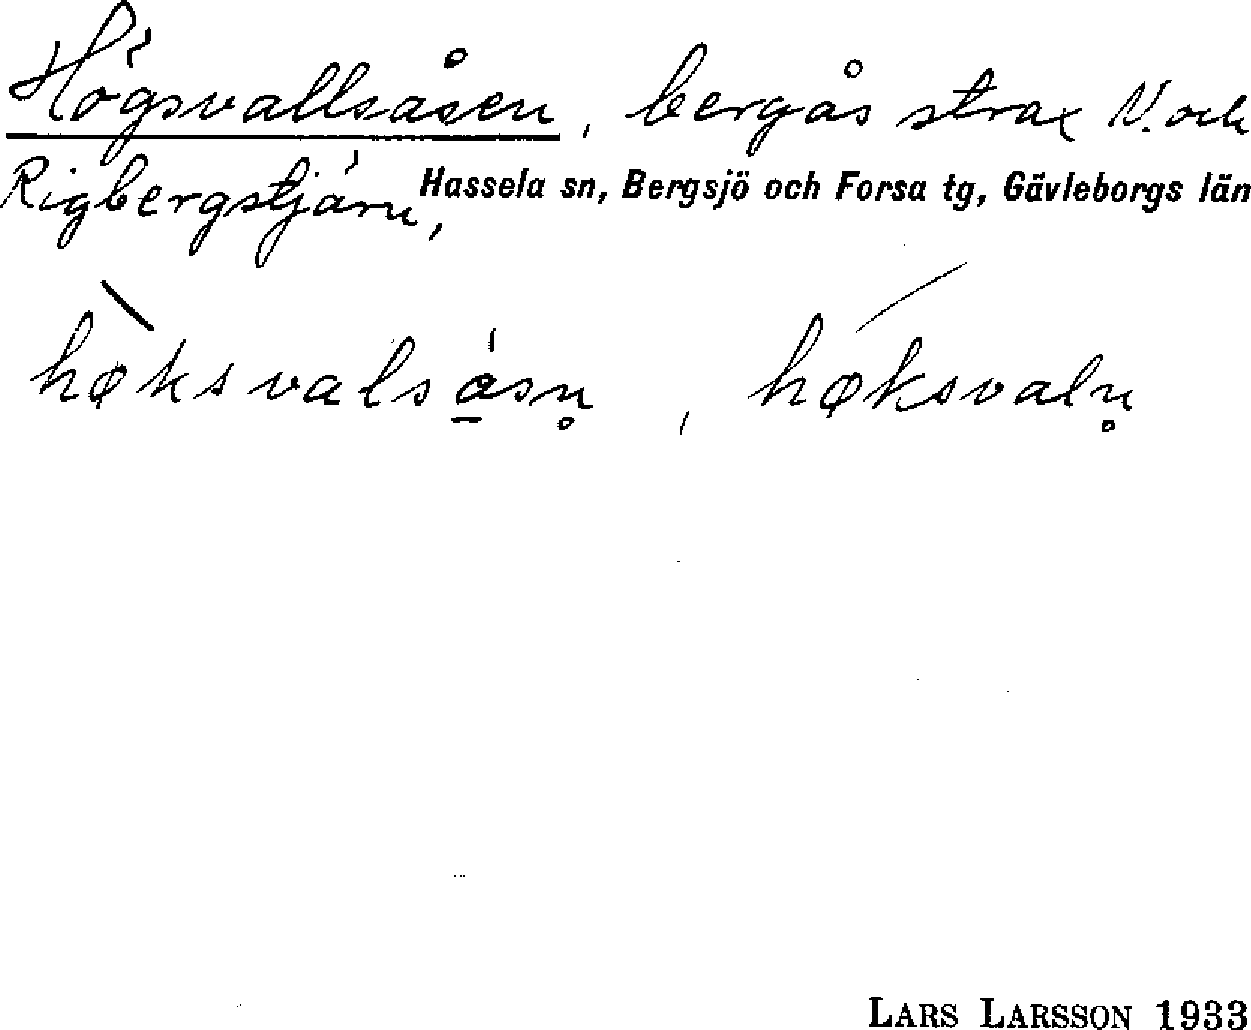 Högsvallsåsen, bergås strax V. och
Rigbergstjärn,
Hassela sn, Bergsjö och Forsa tg, Gävleborgs län
høksvalsåsn̥, høksvaln̥
LARS LARSSON 1933